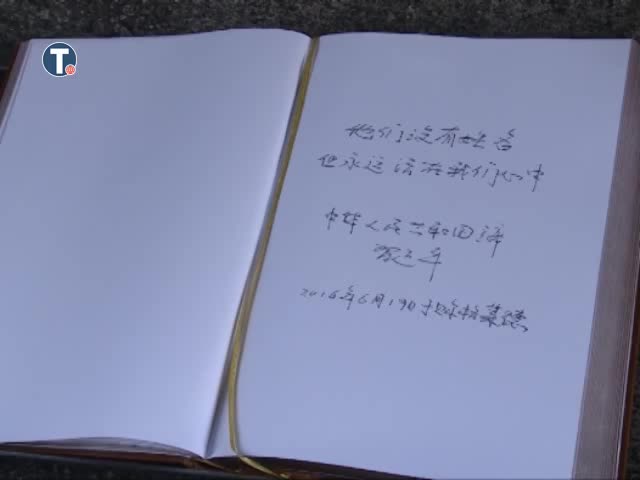 T
他们没有姓名
但永远活在我们心中
中华人民共和国
2016年6月19日于贝尔格莱德